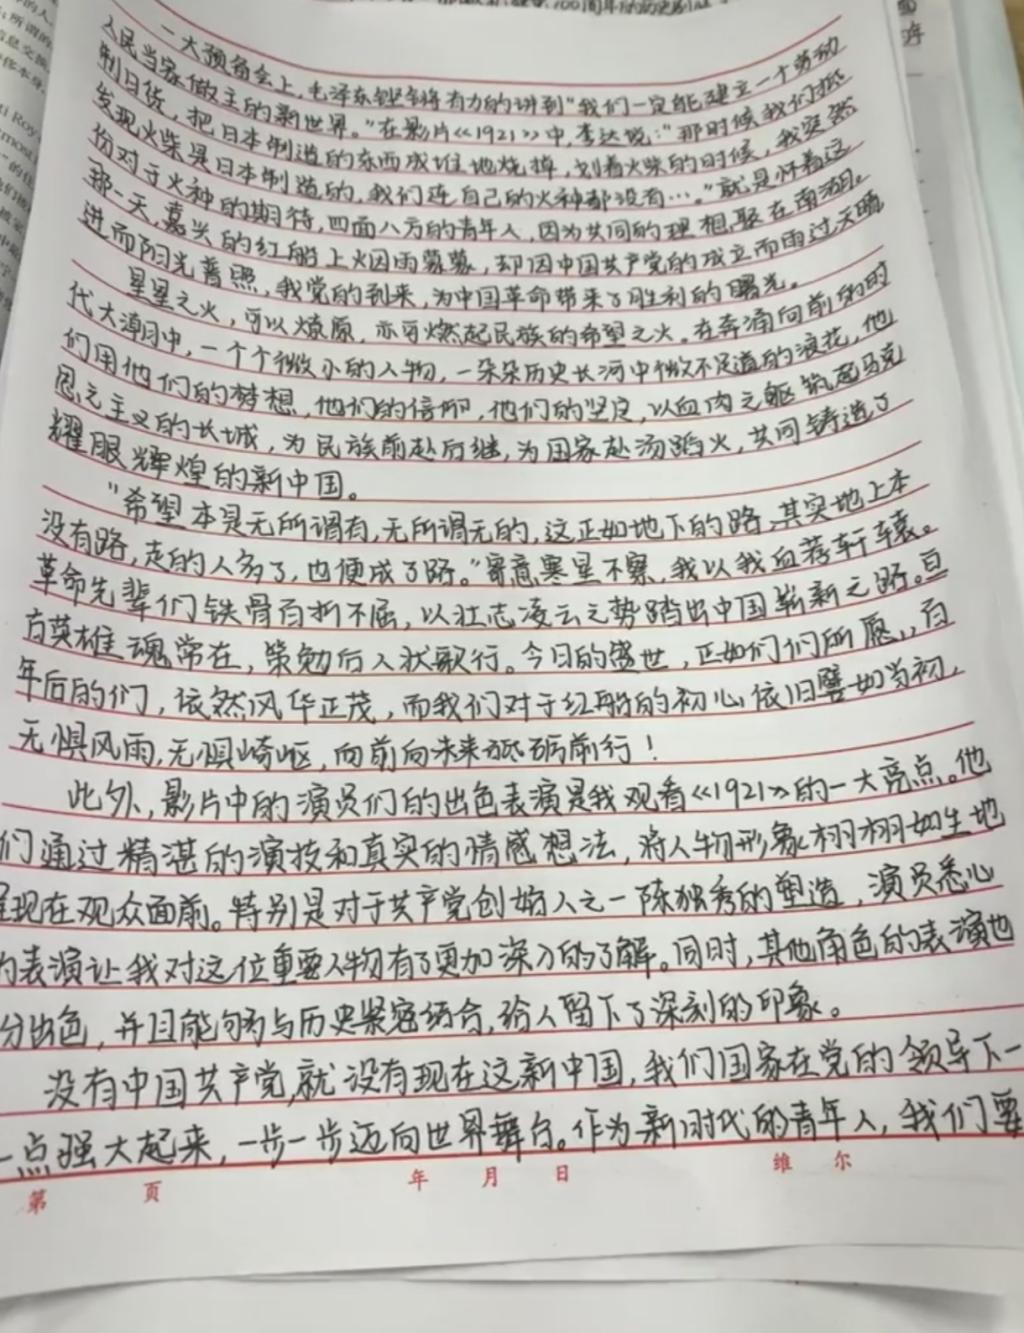 一大预备会上，毛泽东铿锵有力的讲到“我们一定能建立一个劳动
人民当家做主的新世界。”在影片《1921》中，李达说：“那时候我们抵
制日货，把日本制造的东西成堆地烧掉，划着火柴的时候，我突然
发现火柴是日本制造的，我们连自己的火种都没有…。”就是怀着这
份对于火种的期待，四面八方的青年人，因为共同的理想聚在南湖。
那一天，嘉兴的红船上烟雨蒙蒙，却因中国共产党的成立而雨过天晴
进而阳光普照，我党的到来，为中国革命带来了胜利的曙光。
星星之火，可以燎原，亦可燃起民族的希望之火。在奔涌向前的时
代大潮中，一个个微小的人物，一朵朵历史长河中微不足道的浪花，他
们用他们的梦想，他们的信仰，他们的坚定，以血肉之躯筑起马克
思主义的长城，为民族前赴后继，为国家赴汤蹈火，共同铸造了
耀眼辉煌的新中国。
“希望本是无所谓有，无所谓无的，这正如地下的路，其实地上本
没有路，走的人多了，也便成了路。”寄意寒星不察，我以我血荐轩辕。
革命先辈们铁骨百折不屈，以壮志凌云之势踏出中国崭新之路。自
古英雄魂常在，策勉后人状歌行。今日的盛世，正如们们所愿，百
年后的们，依然风华正茂，而我们对于红船的初心依旧譬如当初，
无惧风雨，无惧崎岖，向前向未来砥砺前行！
此外，影片中的演员们的出色表演是我观看《1921》的一大亮点。他
们通过精湛的演技和真实的情感想法，将人物形象栩栩如生地
呈现在观众面前。特别是对于共产党创始人之一陈独秀的塑造，演员悉心
的表演让我对这位重要人物有了更加深入的了解。同时，其他角色的表演也
分出色，并且能够与历史紧密结合，给人留下了深刻的印象。
没有中国共产党，就没有现在这新中国，我们国家在党的领导下一
一点强大起来，一步一步迈向世界舞台。作为新时代的青年人，我们要
第 页 年 月 日 维 尔